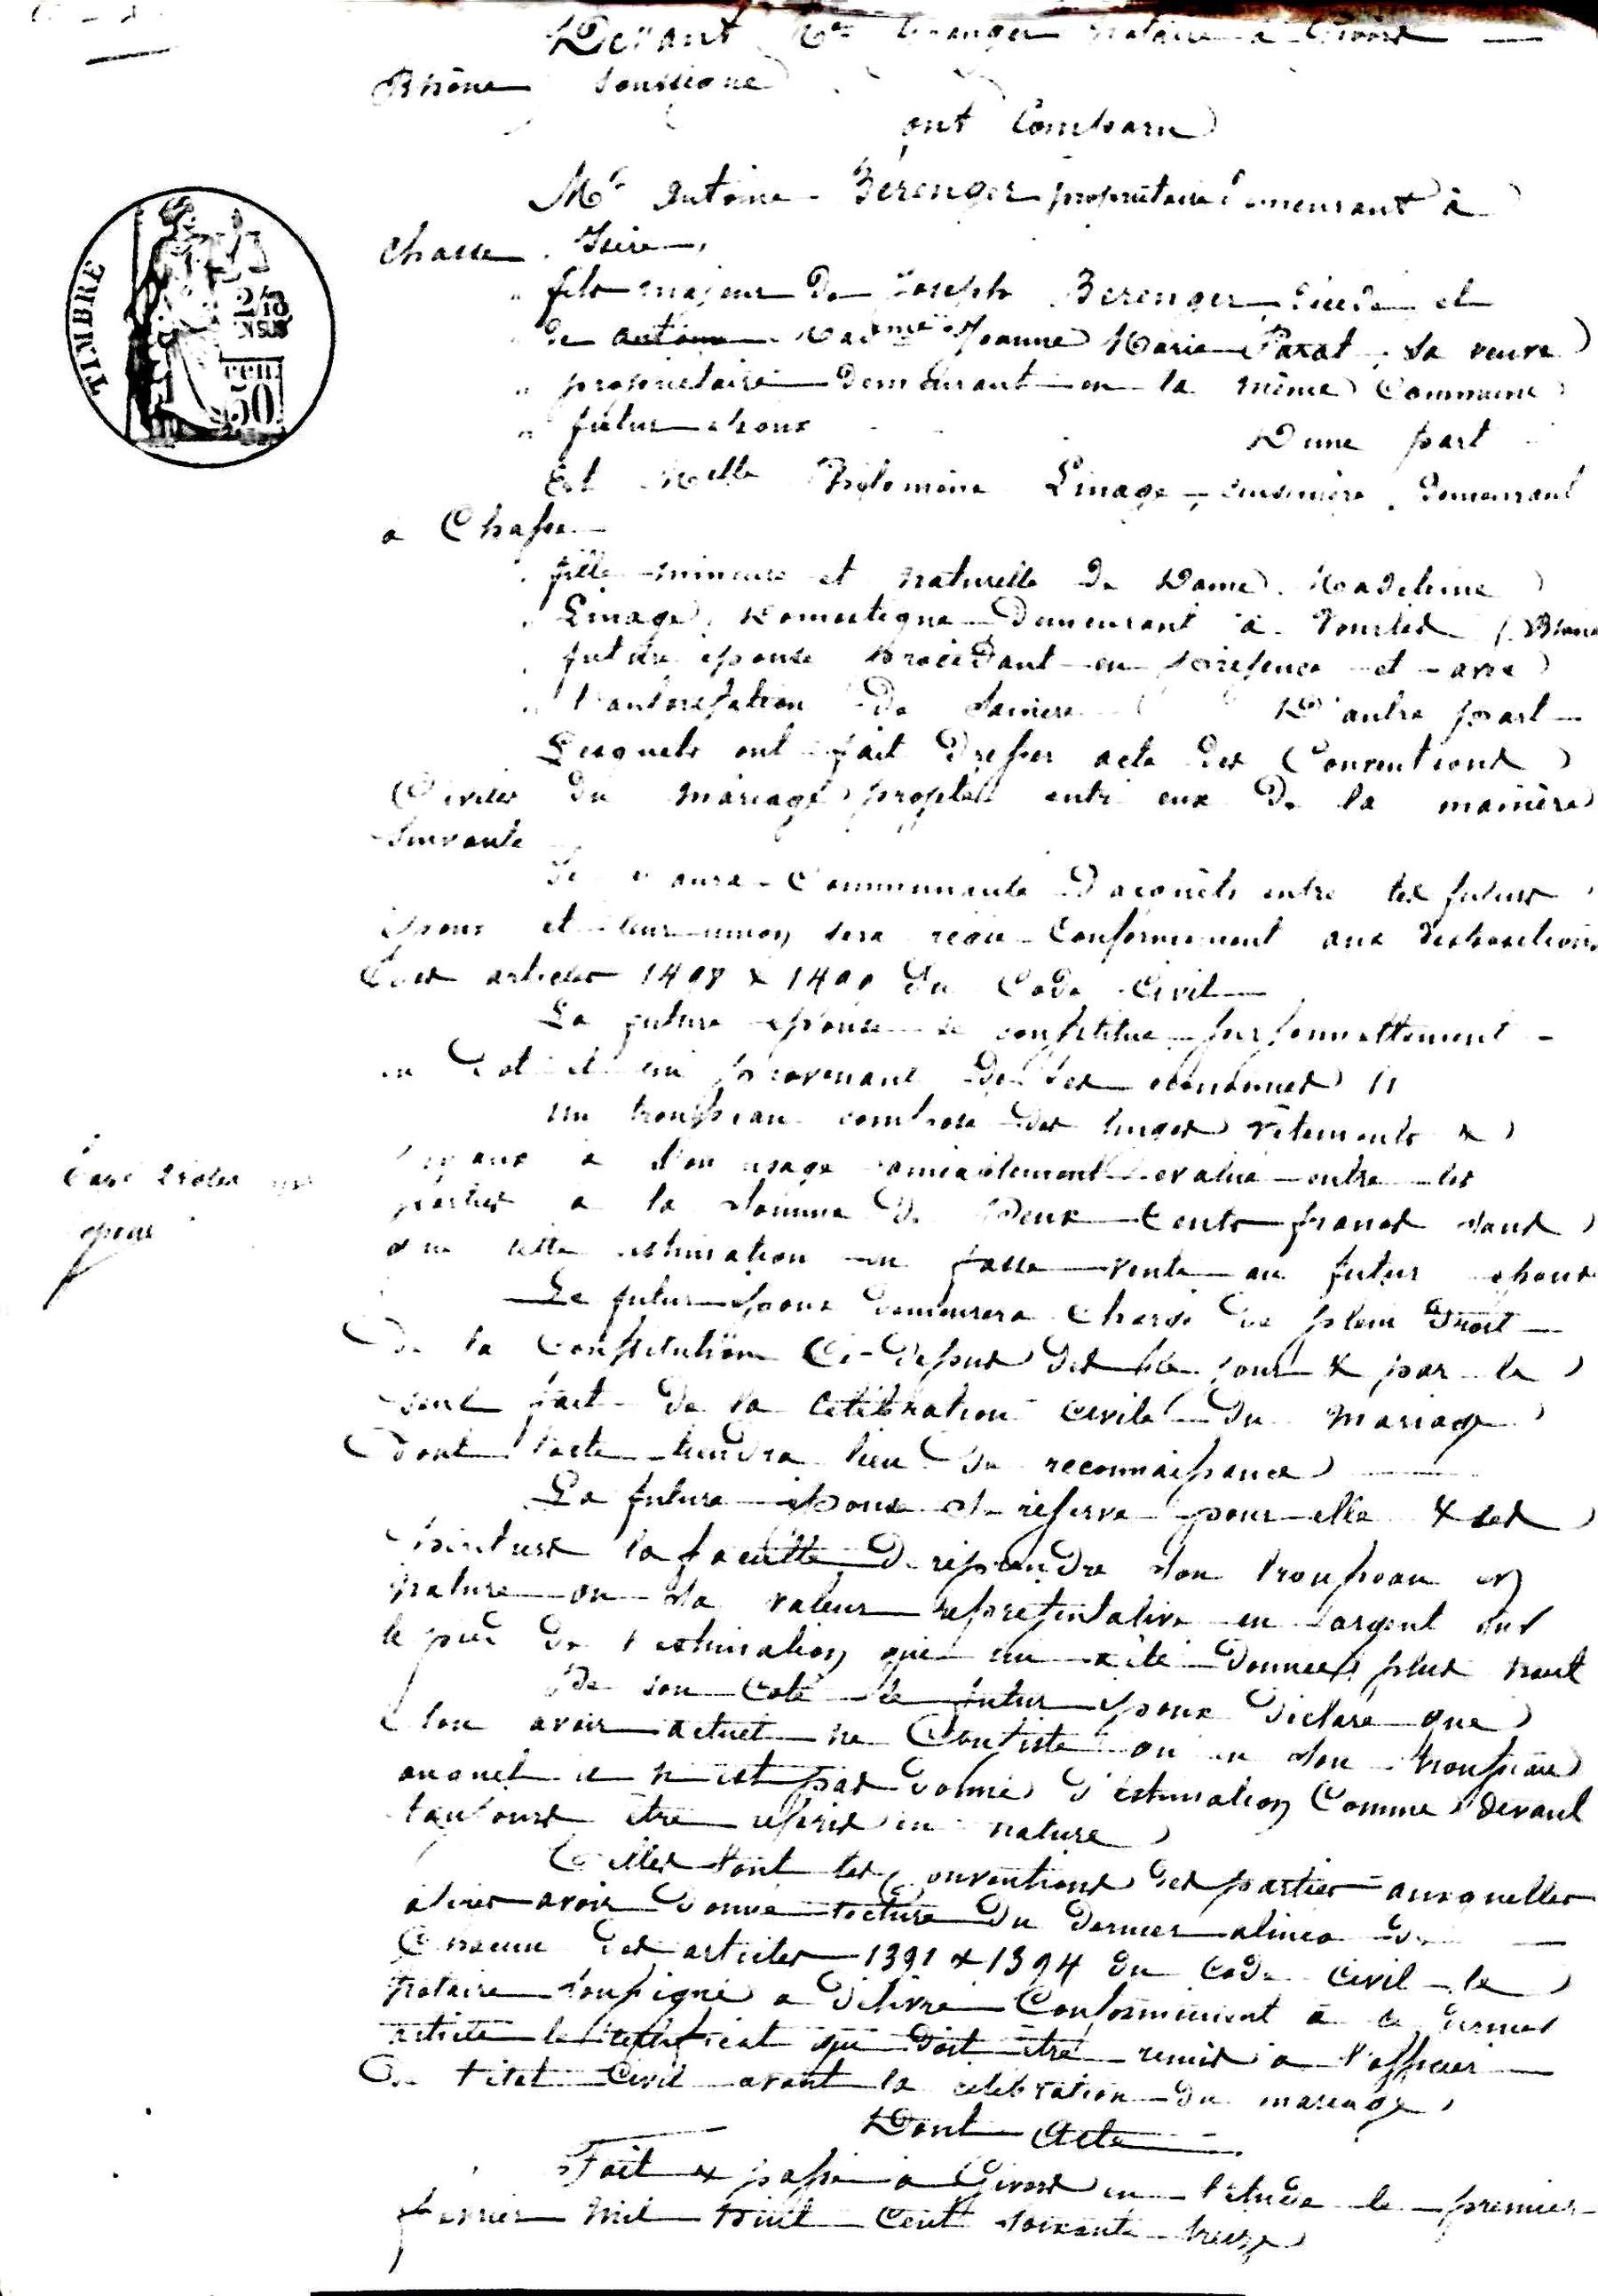 Devant Me notaire à Givors
Rhône soussigné
ont Comparu
Mr Antoine Bérenger propriétaire demeurant à
Chasse Isère
TIMBRE
fils majeur de Joseph Berenger décédé et
de Antoine Madme Jeanne Marie sa veuve
50
propriétaire demeurant en la même Commune
futur époux D'une part
Et Melle Philomène Linage cuisinière demeurant
à Chasse
fille mineure et naturelle de Dame Madeleine
Linage, Domestique demeurant à
future épouse procédant en présence et avec
l'autorisation de sa mère D'autre part
Lesquels ont fait dresser acte des Conventions
Civiles du mariage projeté entr'eux de la manière
suivante
Il y aura Communauté d'acquêts entre les futurs
époux et leur union sera régie Conformément aux
des articles 1498 & 1499 du Code Civil
La future épouse se constitue personnellement
en dot et en provenant de ses économies
un trousseau composé des linges vêtements &
joyaux à son usage amiablement évalué entre les
parties à la somme de Deux Cents francs sans
que cette estimation en fasse vente au futur époux
Le futur époux demeurera chargé de plein droit
de la Constitution Ci-dessus dès le jour & par le
seul fait de la célébration civile du mariage
dont l'acte tiendra lieu de reconnaissance
La future épouse se réserve pour elle & ses
héritiers la faculté de reprendre son trousseau en
nature ou sa valeur représentative en argent sur
le pied de l'estimation qui en a été donnée plus haut
De son Coté le futur époux déclare que
son avoir actuel ne Consiste qu'en son trousseau
auquel il n'est pas donné d'estimation Comme devant
toujours être repris en nature
Telles sont les Conventions des parties auxquelles
après avoir donné lecture du dernier alinéa de
Chacun des articles 1391 & 1394 du Code Civil le
notaire soussigné a délivré Conformément à ce dernier
article le certificat qui doit être remis à l'officier
de l'état Civil avant la célébration du mariage
Dont Acte
Fait & passé à Givors en l'étude le premier
février mil huit cent soixante treize